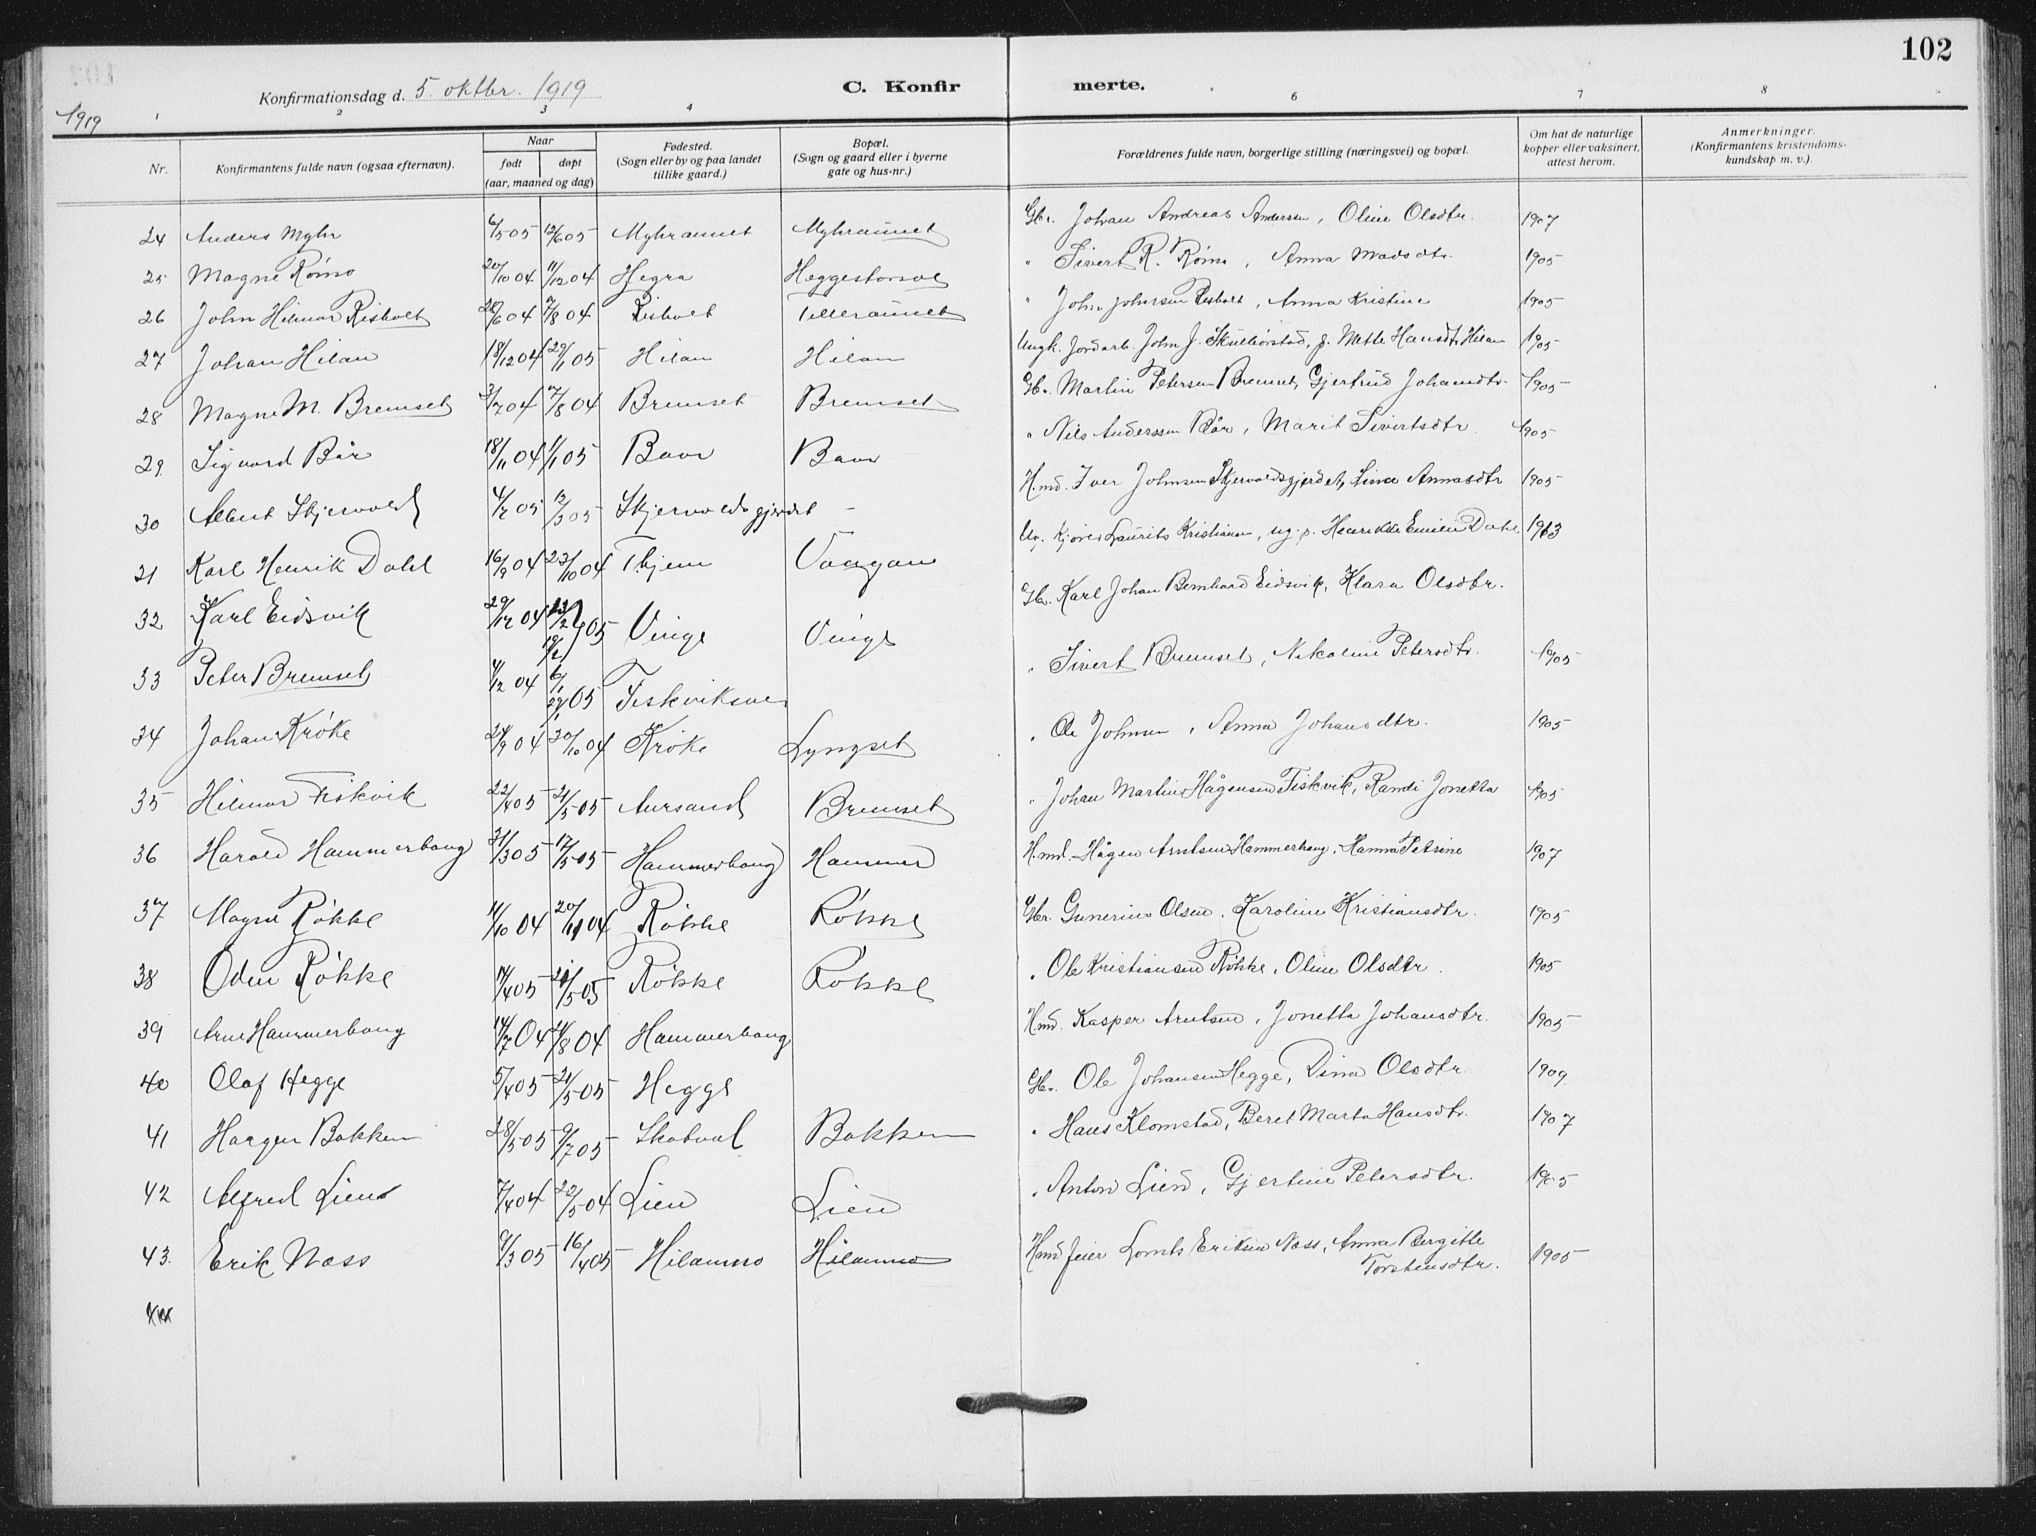 102
Konfirmationsdag d. 5. oktbr. 1919 C. Konfir merte.
1919 1 2 3 4 6 7 8
Nr. Konfirmantens fulde navn (ogsaa efternavn). Naar født døpt (aar, maaned og dag) Fødested. (Sogn eller by og paa landet tillike gaard.) Bopæl. (Sogn og gaard eller i byerne gate og hus-nr.) Forældrenes fulde navn, borgerlige stilling (næringsvei) og bopæl. Om hat de naturlige kopper eller vaksinert, attest herom. Anmerkninger. (Konfirmantens kristendoms-kundskap m. v.).
24 Anders Myhr 6/5 05 12/6 05 Myhraunet Myhraunet Gbr. Johan Andreas Andersen, Oline Olsdtr. 1907
25 Magne Rømo 20/10 04 11/12 04 Hegra Sivert R. Rømo, Anna Madsdtr. 1905
26 John Hilmar Risholt 04 7/8 04 Risholt Tilleraunet " John Johnsen Risholt, Anna Kristine 1905
27 Johan Hilan 18/12 04 29/1 05 Hilan Hilan Ungk. Jordarb. John J. p. Mette Hansdtr. Hilan 1905
28 Magne M. Bremset 3/7 04 7/8 04 Bremset Bremset Gbr. Martin Petersen Bremset, Gjertrud Johansdtr. 1905
29 Sigvard Bår 18/11 04 1/1 05 Baar Baar " Nils Anderssen Bår, Marit Sivertsdtr. 1905
30 Albert Skjervold 4/2 05 12/3 05 Skjervoldsgjerdet - H.md. Iver Johnsen Skjervoldsgjerdet, Lina Annasdtr 1905
31 Karl Henrik Dahl 16/9 04 23/10 04 Vaagan Laurits Kristiansen, ug. p. Emilie Dahl 1913
32 Karl Eidsvik 29/12 04 05 Vinge Vinge Gbr. Karl Johan Bernhard Eidsvik, Klara Olsdtr.
33 Peter Bremset 4/12 04 6/1 05 " Sivert Bremset, Nikoline Petersdtr. 1905
34 Johan Krøke 9 04 30/10 04 Krøke Lyngset " Ole Johnsen, Anna Johansdtr. 1905
35 Hilmar Fiskvik 22/4 05 21/5 05 Aursand Bremset " Johan Martin Hågensen Fiskvik, Randi Jonetta 1905
36 Harald Hammerhaug 31/3 05 17/5 05 Hammerhaug Hammer H.md. Hågen Arntsen Hammerhaug, Hanna Petrine 1907
37 Magne Røkke 11/10 04 20/11 04 Røkke Røkke Gbr. Gunerius Olsen, Karoline Kristiansdtr. 1905
38 Oden Røkke 4 05 21/5 05 Røkke Røkke " Ole Kristiansen Røkke, Oline Olsdtr. 1905
39 Arne Hammerhaug 14/7 04 8 04 Hammerhaug H.md. Kasper Arntsen, Jonetta Johansdtr. 1905
40 Olaf Hegge 5/4 05 21/5 05 Hegge Gbr. Ole Johansen Hegge, Dina Olsdtr 1909
41 Haagen Bakken 28/5 05 9/7 05 Skatval Bakken " Hans Klomstad, Beret Marta Hansdtr. 1907
42 Alfred Lien 7/4 04 22/5 04 Lien Lien " Anton Lien, Gjertine Petersdtr. 1905
43. Erik Næss 9/3 05 16/4 05 Hilanmo Hilanmo Eriksen Næss, Anna Bergitte
Torstensdtr. 1905